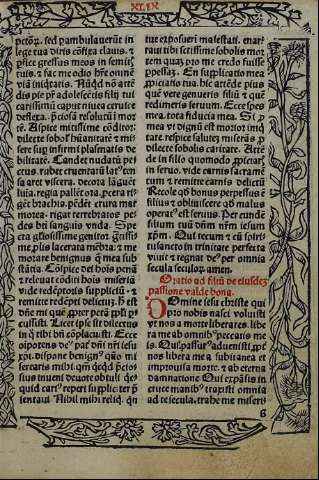 XLIX
pctōꝝ. sed pambulauerūt in
lege tua diris cōfixa clauis. &
ꝑfice gressus meos in semitꝭ
tuis. & fac me odio hr̄e omnē
viā iniqtatis. Nūqd nō attē
dis pie pr̄ adolescētis filij tui
carissimū caput niuea ceruice
deflexa. p̄ciosā resolutū ī mor
tē. Aspice mitissime cōditor:
dilecte sobolꝭ hūanitatē & mi
sere sup infirmi plasmatis de
bilitatē. Candet nudatū pe
ctus. rubet cruentatū latꝰ ten
sa aret viscera. decora lāguēt
lumina. regia pallēt ora. ꝓcera ri
gēt brachia. pēdēt crura mar
morea. rigat terebratos pe
des bti sanguis vnda. Spe
cta gliosissime genitor. gͣtissi
me plis lacerata mēbra: & me
morare benignus q̄ mea sub
stātia. Cōspice dei hoīs penā
& releua cōditi hoīs miseriā
vide redēptoris suppliciū: &
remitte redēpti delictū. hꝰ est
dn̄e mi quē ꝓpter p̄ctā ppl'i ꝑ
cussisti. Licet ip̄e sit dilectus
in q̄ tibi bn̄ cōplacuisti. Ecce
oīpotens deꝰ pat' dn̄i nr̄i iesu
xp̄i. dispone benignꝰ q̄so mi
sercatis mihi. qm̄ qcqd p̄ciosi
us inueni deuote obtuli: qcqd
quid carꝰ reperi supplicit' p̄
sentaui Nihil mihi reliq: qn
tue exposueri maiestati. enar
raui tibi scitissime sobolis mor
tem quaȝ pro me credo fuisse
ꝑpessaȝ. En supplicatio mea
ꝓpiciatio tua. hic attēde pius
quē vere genueris filiū & quē
redimeris seruum. Ecce spes
mea. tota fiducia mea. Si ꝓ
mea vt dignū est mortor iniq
itate. respice saltez miserās ꝓ
dilecte sobolis caritate. Attē
de in filio quomodo ꝓpiciarꝭ
in seruo. vide carnis sacramē
tum & remitte carnis delictū
Recole q̄d bonus perpessus ē
filius & obliuiscere q̄d malus
operatꝰ est seruus. Per eundē
filium tuū dn̄m nr̄m iesum
xp̄m. Qui tecum & cū spiritu
sancto in trinitate perfecta
viuit & regnat deꝰ per omnia
secula seculorꝫ amen.
Oratio ad filiū de eiusdeȝ
passione valde bona.
Domine iesu christe qui
pro nobis nasci voluisti
vt nos a morte liberares. libe
ra me ab omnibꝰ peccatis me
is. Qui passurꝰ aduenisti. ꝑpe
nos libera mea subitanea et
improuisa morte. & ab eterna
damnatione Qui expāsis in
cruce manibꝰ traxisti omnia
ad te secula. trahe me miseris
g